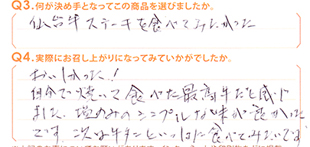 Q3.何が決め手となってこの商品を選びましたか。
仙台牛ステーキを食べてみたかった
Q4.実際にお召し上がりになってみていかがでしたか。
おいしかった!
自分で焼いて食べた最高牛だと感じ
ました、塩のみのシンプルな味が良かった
です。次は牛タンといっしょに食べてみたいです